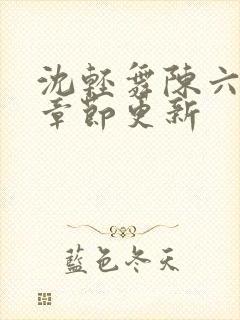 沈輕舞陳六
章節更新
藍色冬天